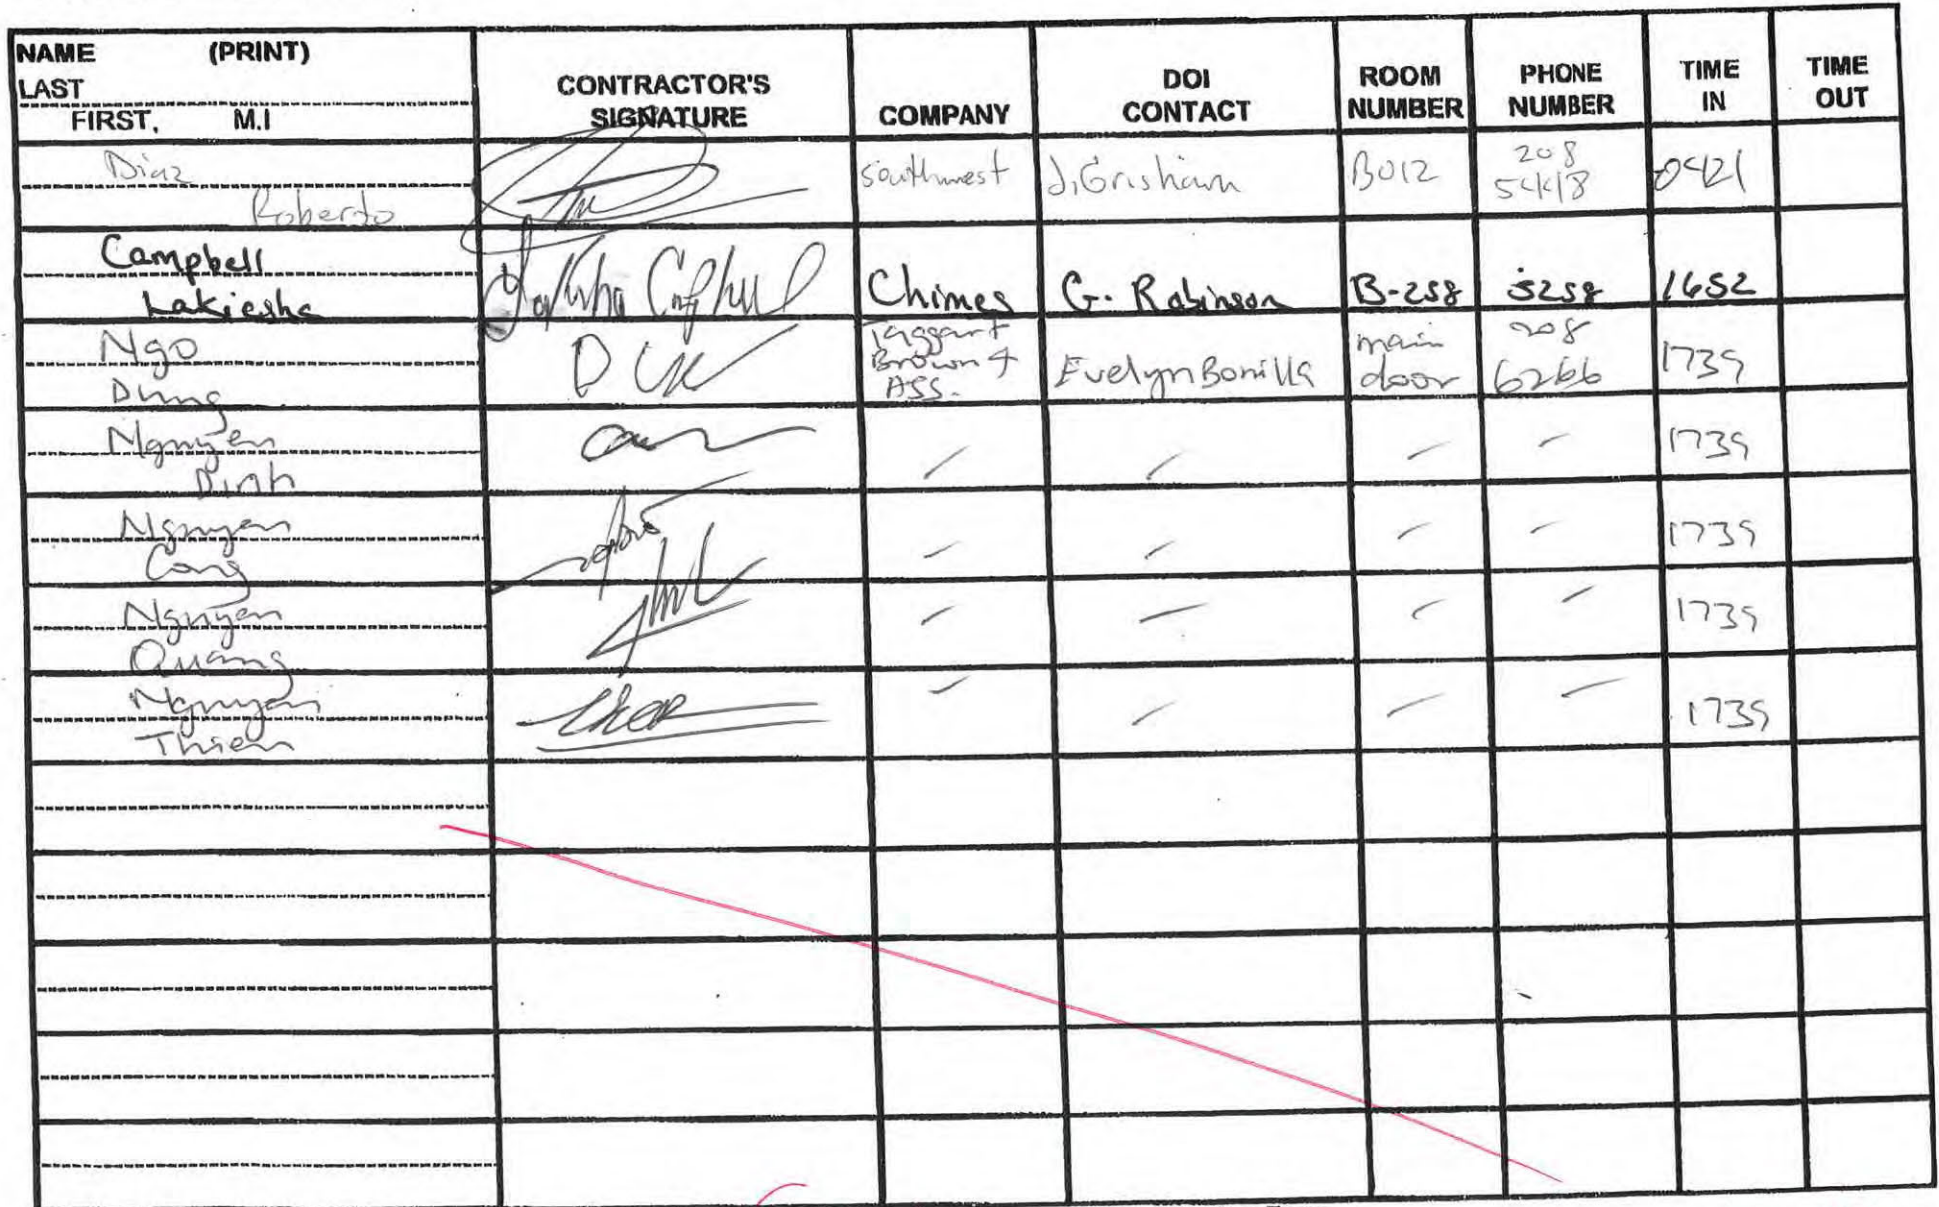 NAME (PRINT)
LAST
FIRST, M.I
CONTRACTOR'S
SIGNATURE
COMPANY
DOI
CONTACT
ROOM
NUMBER
PHONE
NUMBER
TIME
IN
TIME
OUT
Diaz
Roberto
Southwest
J. Grisham
B012
208
5448
0421
Campbell
Lakiesha
Chimes
G. Robinson
B-258
5258
1652
Ngo
Dung
Taggart
Brown +
ASS.
Evelyn Bonilla
main
door
208
6266
1739
Nguyen
Dinh
1739
Nguyen
Cong
1739
Nguyen
Quang
1739
Nguyen
Thien
1739